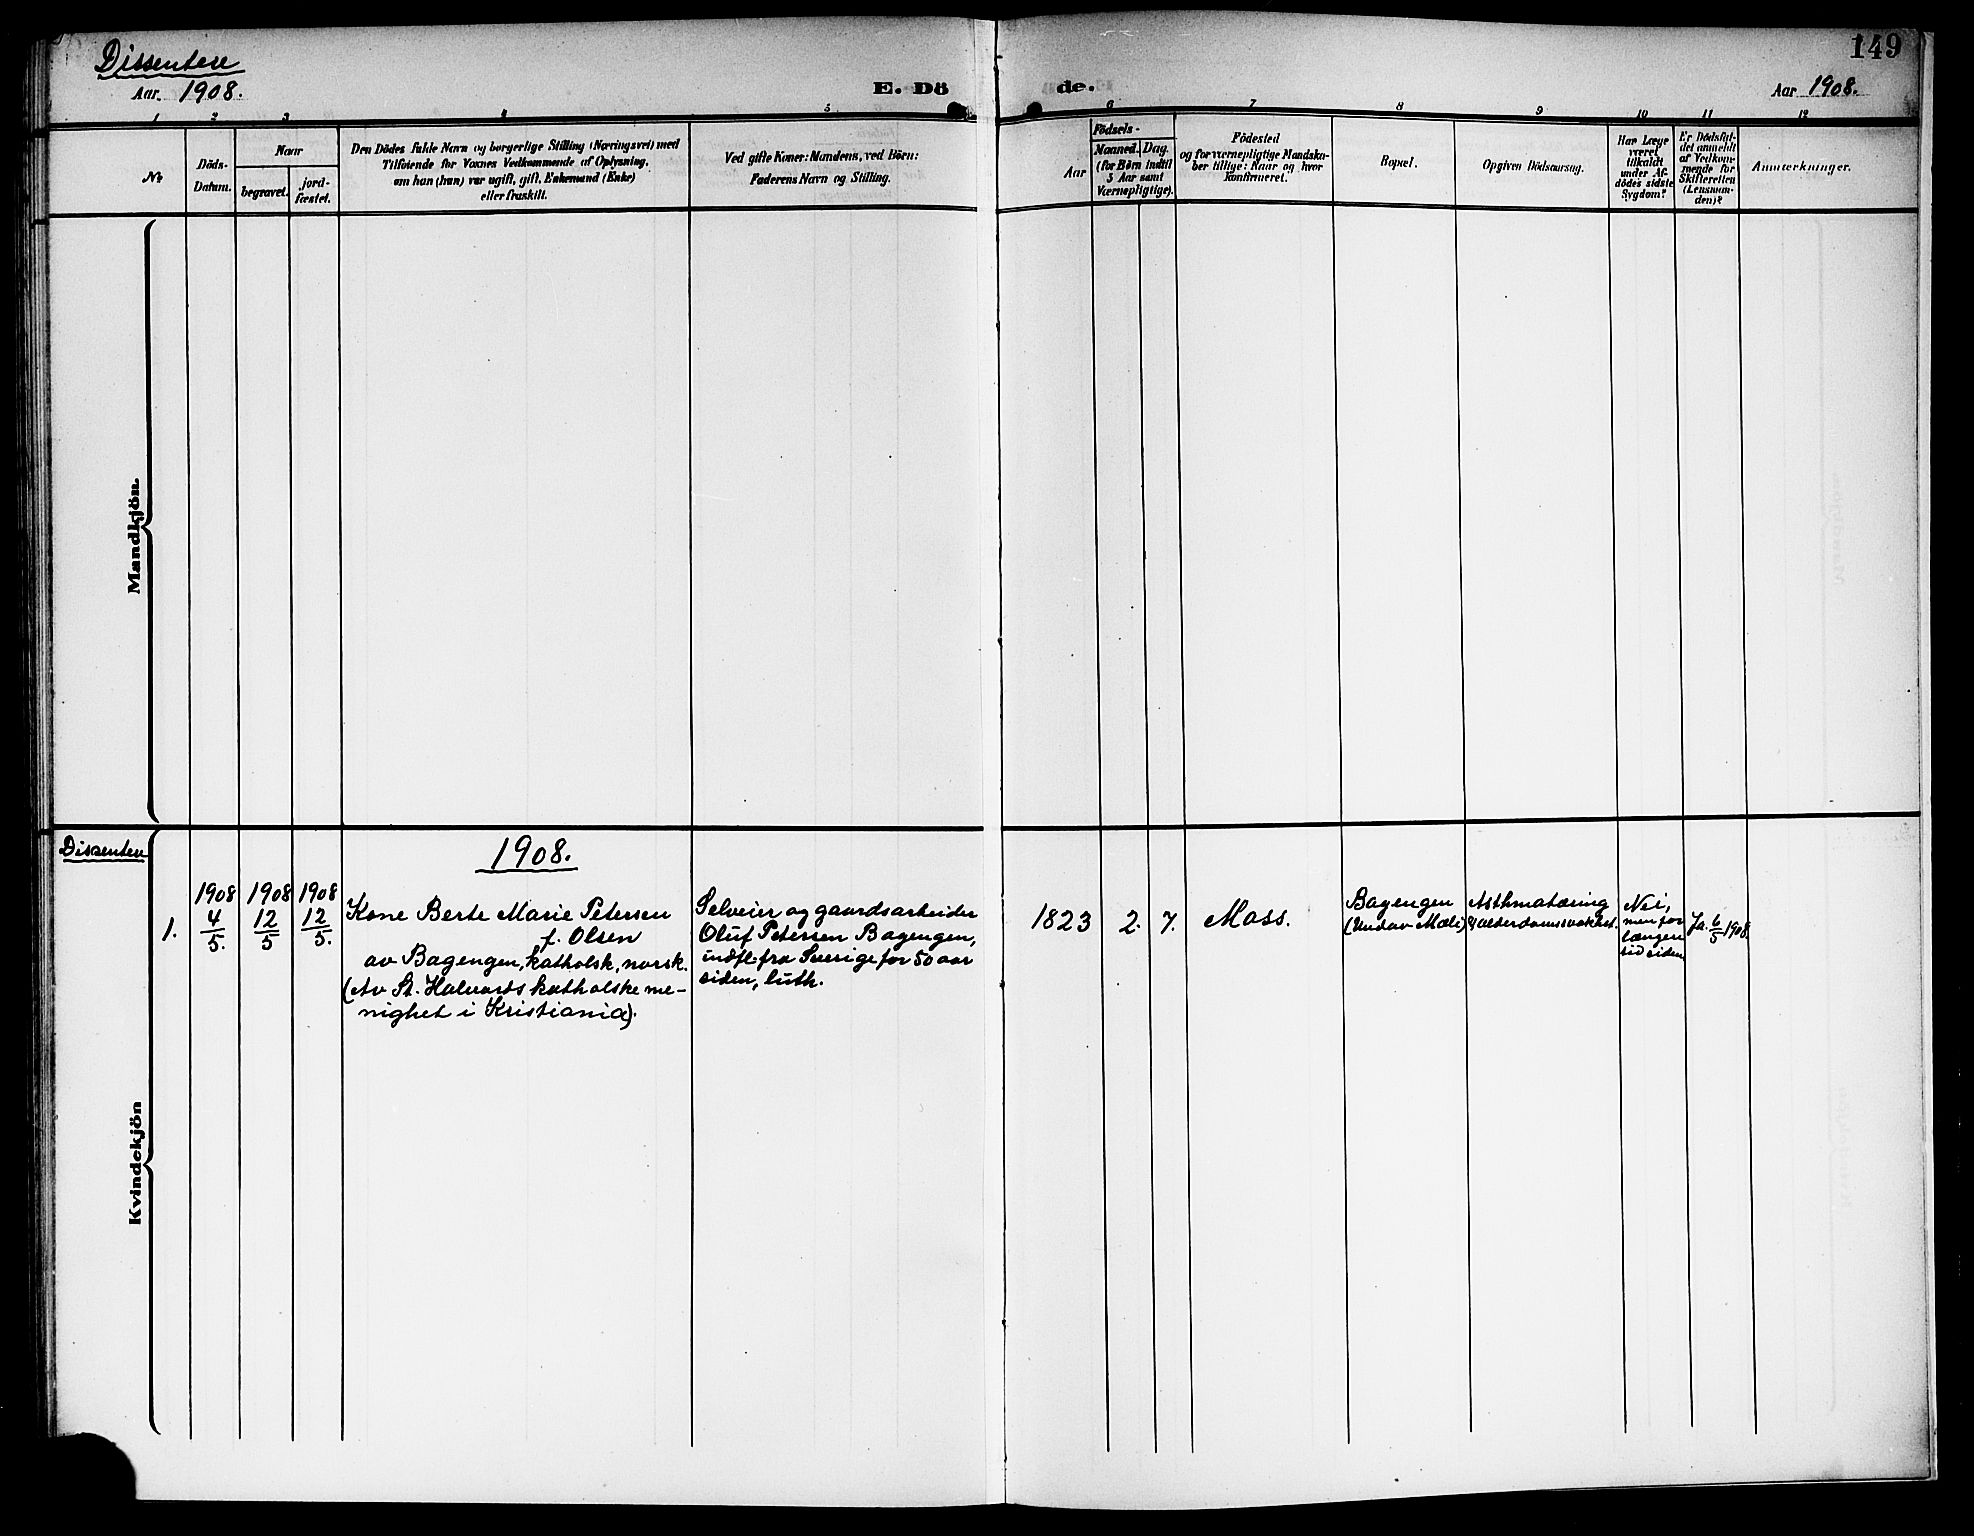 149
Dissentere
Aar. 1908.
E. Dö
de.
Aar 1908.
1
2
3
4
5
6
7
8
9
10
11
12
Nr
Döds-
Datum.
Naar
begravet.
jord-
fæstet.
Den Dödes fulde Navn og borgerlige Stilling (Næringsvei) med
Tilföiende for Voxnes Vedkommende af Oplysning,
om han (hun) var ugift, gift, Enkemand (Enke)
eller fraskilt.
Ved gifte Koner: Mandens, ved Börn:
Faderens Navn og Stilling.
Aar
Födsels-
Maaned.
Dag.
(for Börn indtil
5 Aar samt
Værnepligtige).
Födested
og for værnepligtige Mandska-
ber tillige: Naar og hvor
Konfirmeret.
Bopæl.
Opgiven Dödsaarsag.
Har Læge
været
tilkaldt
under Af-
dödes sidste
Sygdom?
Er Dödsfal-
det anmeldt
af Vedkom-
mende for
Skifteretten
(Lensman-
den)?
Anmærkninger.
Mandkjön.
Dissentere
1908.
Kvindekjön
1.
1908
4/5.
1908
12/5
1908
12/5.
Kone Berte Marie Petersen
f. Olsen
av Bagengen, katholsk, norsk.
(Av St. Halvards katholske me-
nighet i Kristiania).
Selveier og gaardsarbeider
Oluf Petersen Bagengen,
indfl. fra Sverige for 50 aar
siden, luth.
1823
2.
7.
Moss.
Bagengen
(Under Mæli)
Asthmatæring
& alderdomssvakhet.
Nei,
men for
længere
tid siden
Ja. 6/5 1908.